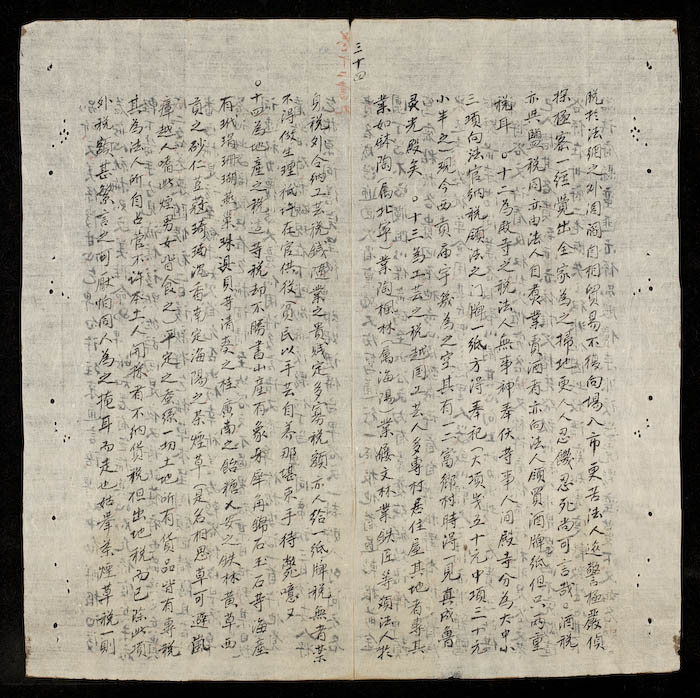 三十四
脫於法網之外閭閻自相貿易不復向場入市更苦法人巡警極嚴偵
探極密一經覺出全家為之掃地更人人忍饑忍死尚可言哉。酒稅
亦與盐稅同亦由法人自煮業賣酒者亦向法人領買酒牌紙但只兩重
稅耳 。十二為殿寺之稅法人無事神奉佛等事人间殿寺分為大中小
三項向法官納稅領法之门牌一紙方得奉祀大項歲五十元中項三十元
小半之現今西貢庙宇幾為之空其有一二富鄉村時得一見真成魯
灵光殿矣 。十三為工芸之稅越国工芸人多專村居住屋其地者專其
業如鉢陶属北寧業陶楓林(属海陽)業文林業鉄匠等類法人於
身稅外令納工芸稅錢隨業之貴賤定多寡稅額亦人給一紙牌稅無者業
不得做生理祇許在官供役貧民以手芸自養那堪束手待斃噫又
。十四為地產之稅這等稅却不勝書山產有象身犀角錦石玉石等海產
有玳瑁珊瑚燕巢珠貝等清化之桂廣南之飴糖大安之鉄林黃草西
貢之砂仁荳蔻琦璃沉香南定海陽之茶煙草(是名相思草可避嵐
瘴越人嗜此煙男女皆食之)平定之蚕絲一切土地所有貨品皆有專稅
其為法人所自占管不許本土人開採者不納貨稅但出地稅而已除此項
外稅額甚繁言之可厭怕同人為之掩耳而走也姑舉茶煙草稅一則